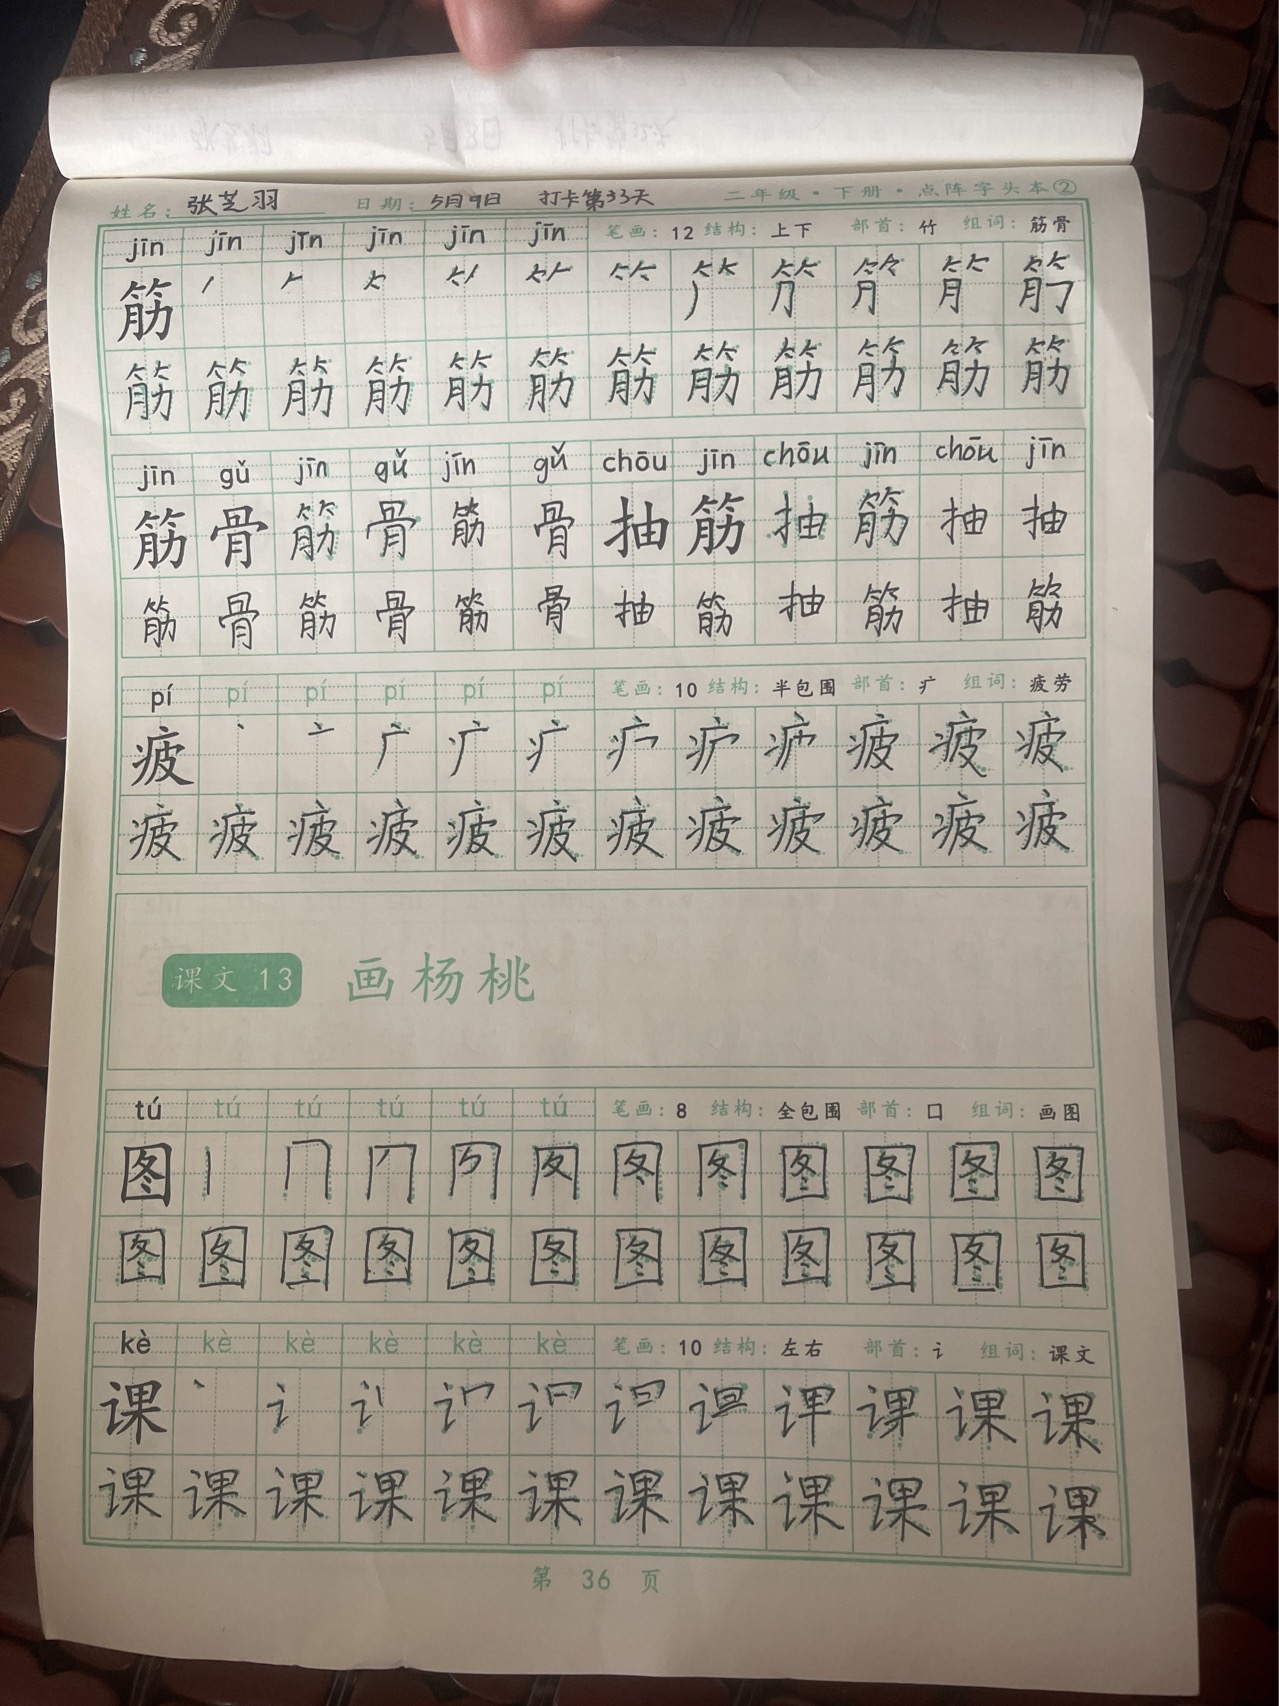 姓名：张芝羽 日期：5月9日 打卡第33天 二年级·下册·点阵字头本②
jīn jīn jīn jīn jīn jīn 笔画：12 结构：上下 部首：竹 组词：筋骨
筋
筋 筋 筋 筋 筋 筋 筋 筋 筋 筋 筋 筋
jīn gǔ jīn gǔ jīn gǔ chōu jīn chōu jīn chōu jīn
筋 骨 筋 骨 筋 骨 抽 筋 抽 筋 抽 抽
筋 骨 筋 骨 筋 骨 抽 筋 抽 筋 抽 筋
pí pí pí pí pí pí 笔画：10 结构：半包围 部首：疒 组词：疲劳
疲 丶 亠 广 疒 疲 疲 疲
疲 疲 疲 疲 疲 疲 疲 疲 疲 疲 疲 疲
课文 13 画杨桃
tú tú tú tú tú tú 笔画：8 结构：全包围 部首：囗 组词：画图
图 丨 冂 图 图 图 图
图 图 图 图 图 图 图 图 图 图 图 图
kè kè kè kè kè kè 笔画：10 结构：左右 部首：讠 组词：课文
课 丶 讠 课 课 课
课 课 课 课 课 课 课 课 课 课 课 课
第 36 页